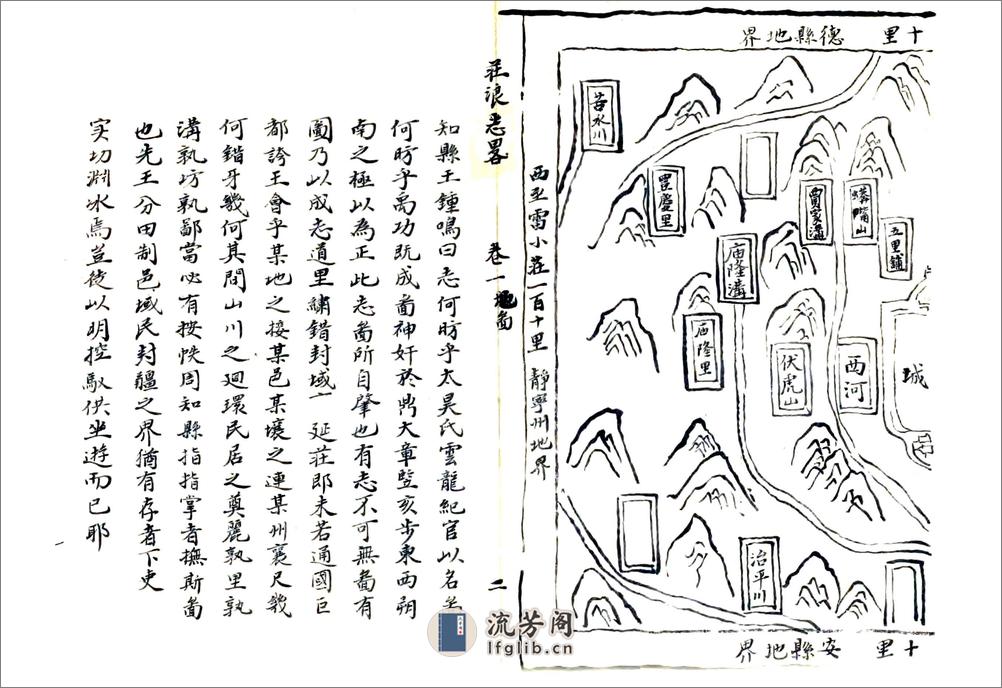 十里 德縣地界
五里鋪
賈家溝
豐慶里
苦水川
庙隆溝
庙隆里
伏虎山
西河
城
治平川
十里 安縣地界
西至雷小莊一百十里 靜寧州地界
莊浪志畧 卷一 地啚 二
知縣王鍾鳴曰志何昉乎太昊氏雲龍紀官以名
何昉乎禹功既成啚神奸於鼎大章豎亥步東西朔
南之極以為正此志啚所自肇也有志不可無啚有
啚乃以成志道里繡錯封域一延莊郎未若通國巨
都誇王會乎某地之接某邑某壤之連某州襄尺幾
何錯牙幾何其間山川之廻環民居之奠麗孰里孰
溝孰坊孰鄙當必有按帙周知縣指指掌者撫斯啚
也先王分田制邑域民封疆之界猶有存者下吏
实切淵冰焉豈徒以明控馭供坐遊而已耶
流芳阁
lfglib.cn